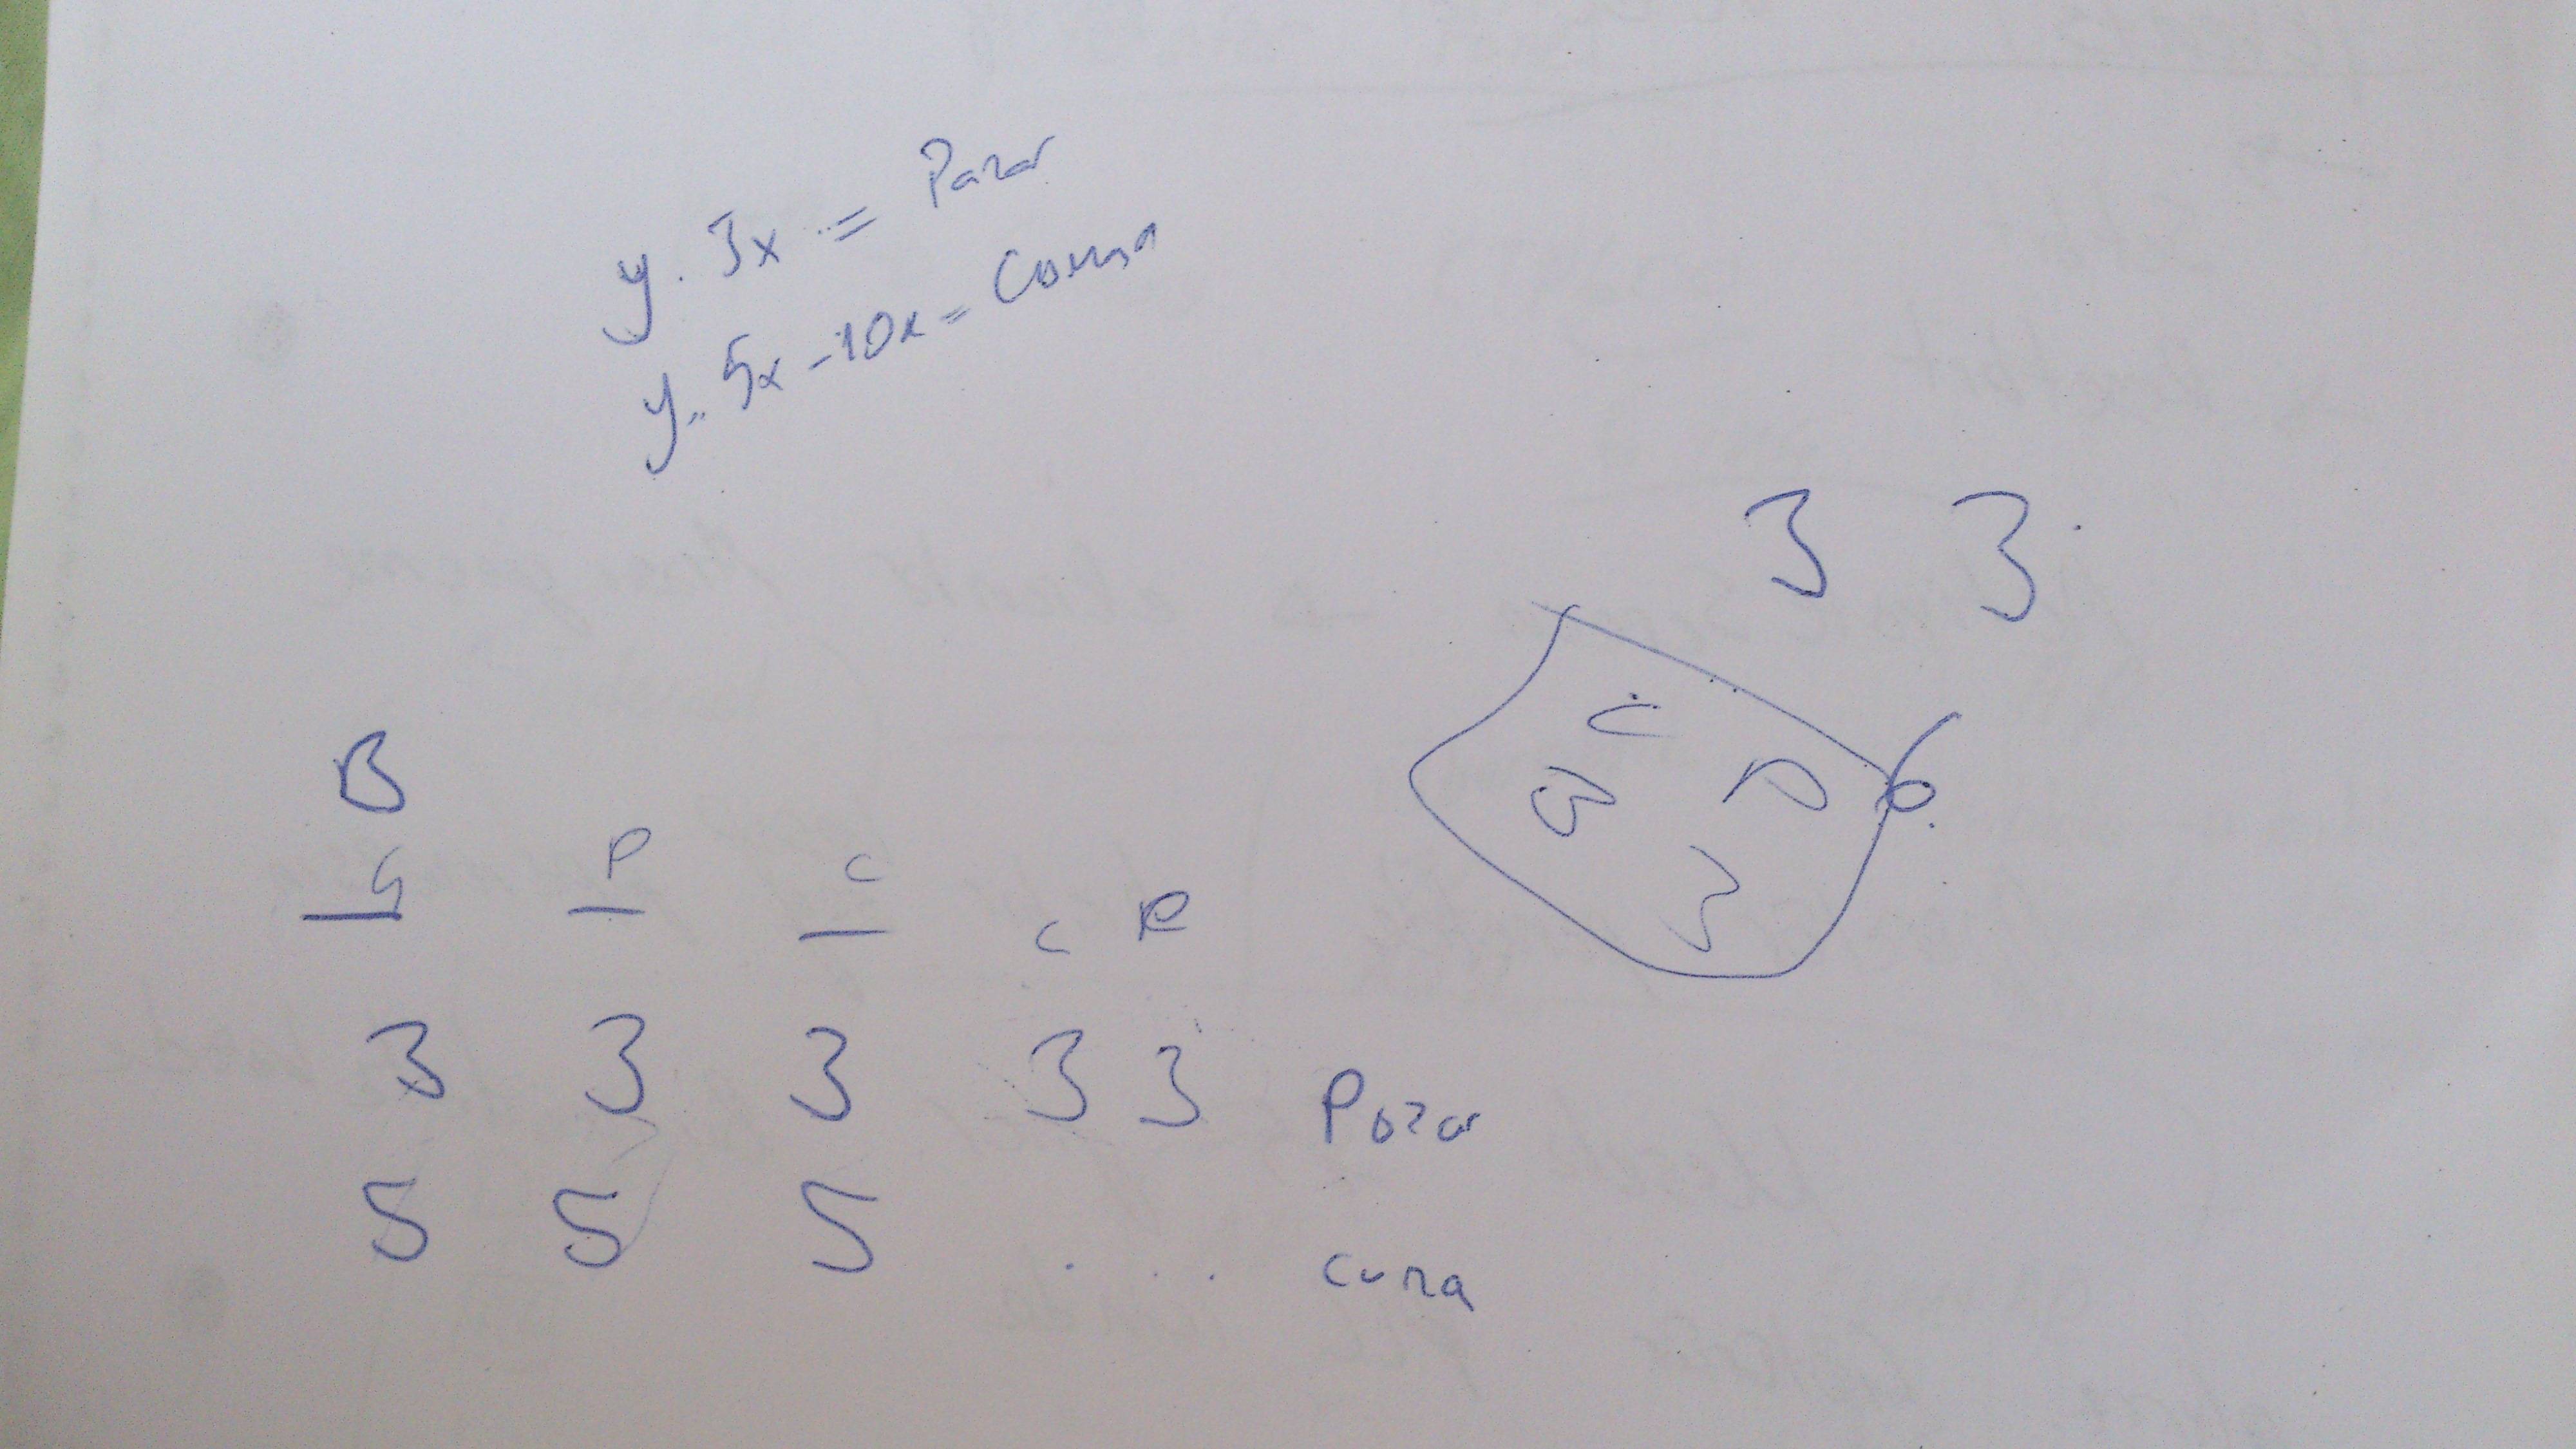 y. 3x = Pazar
y. 5x - 10x = Cuma
3 3
C
3 P 6
3
B
P C C
3 3 3 3 3 Pazar
5 5 5 . . . cuma